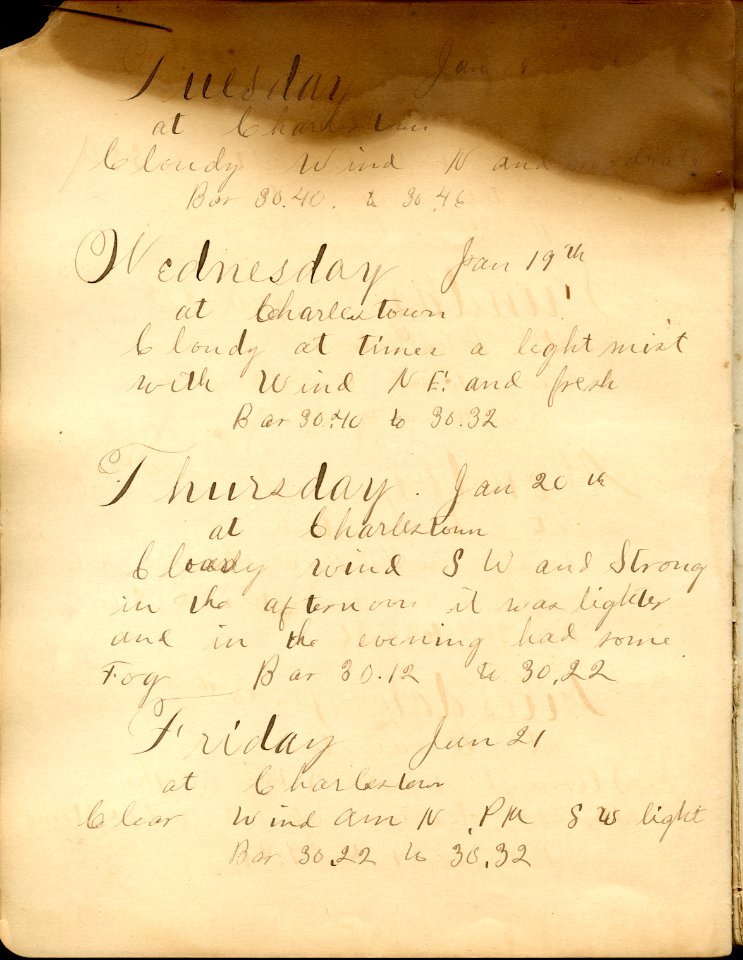 Tuesday Jan 18
at Charlestown
Cloudy Wind N and
Bar 30.40. to 30.46
Wednesday Jan 19th
at Charlestown
Cloudy at times a light mist
with Wind N E. and fresh
Bar 30.40 to 30.32
Thursday. Jan 20th
at Charlestown
Cloudy wind S W and Strong
in the afternoon it was lighter
and in the evening had some
Fog Bar 30.12 to 30.22
Friday Jan 21
at Charlestown
Clear Wind Am N. PM S W light
Bar 30.22 to 30.32